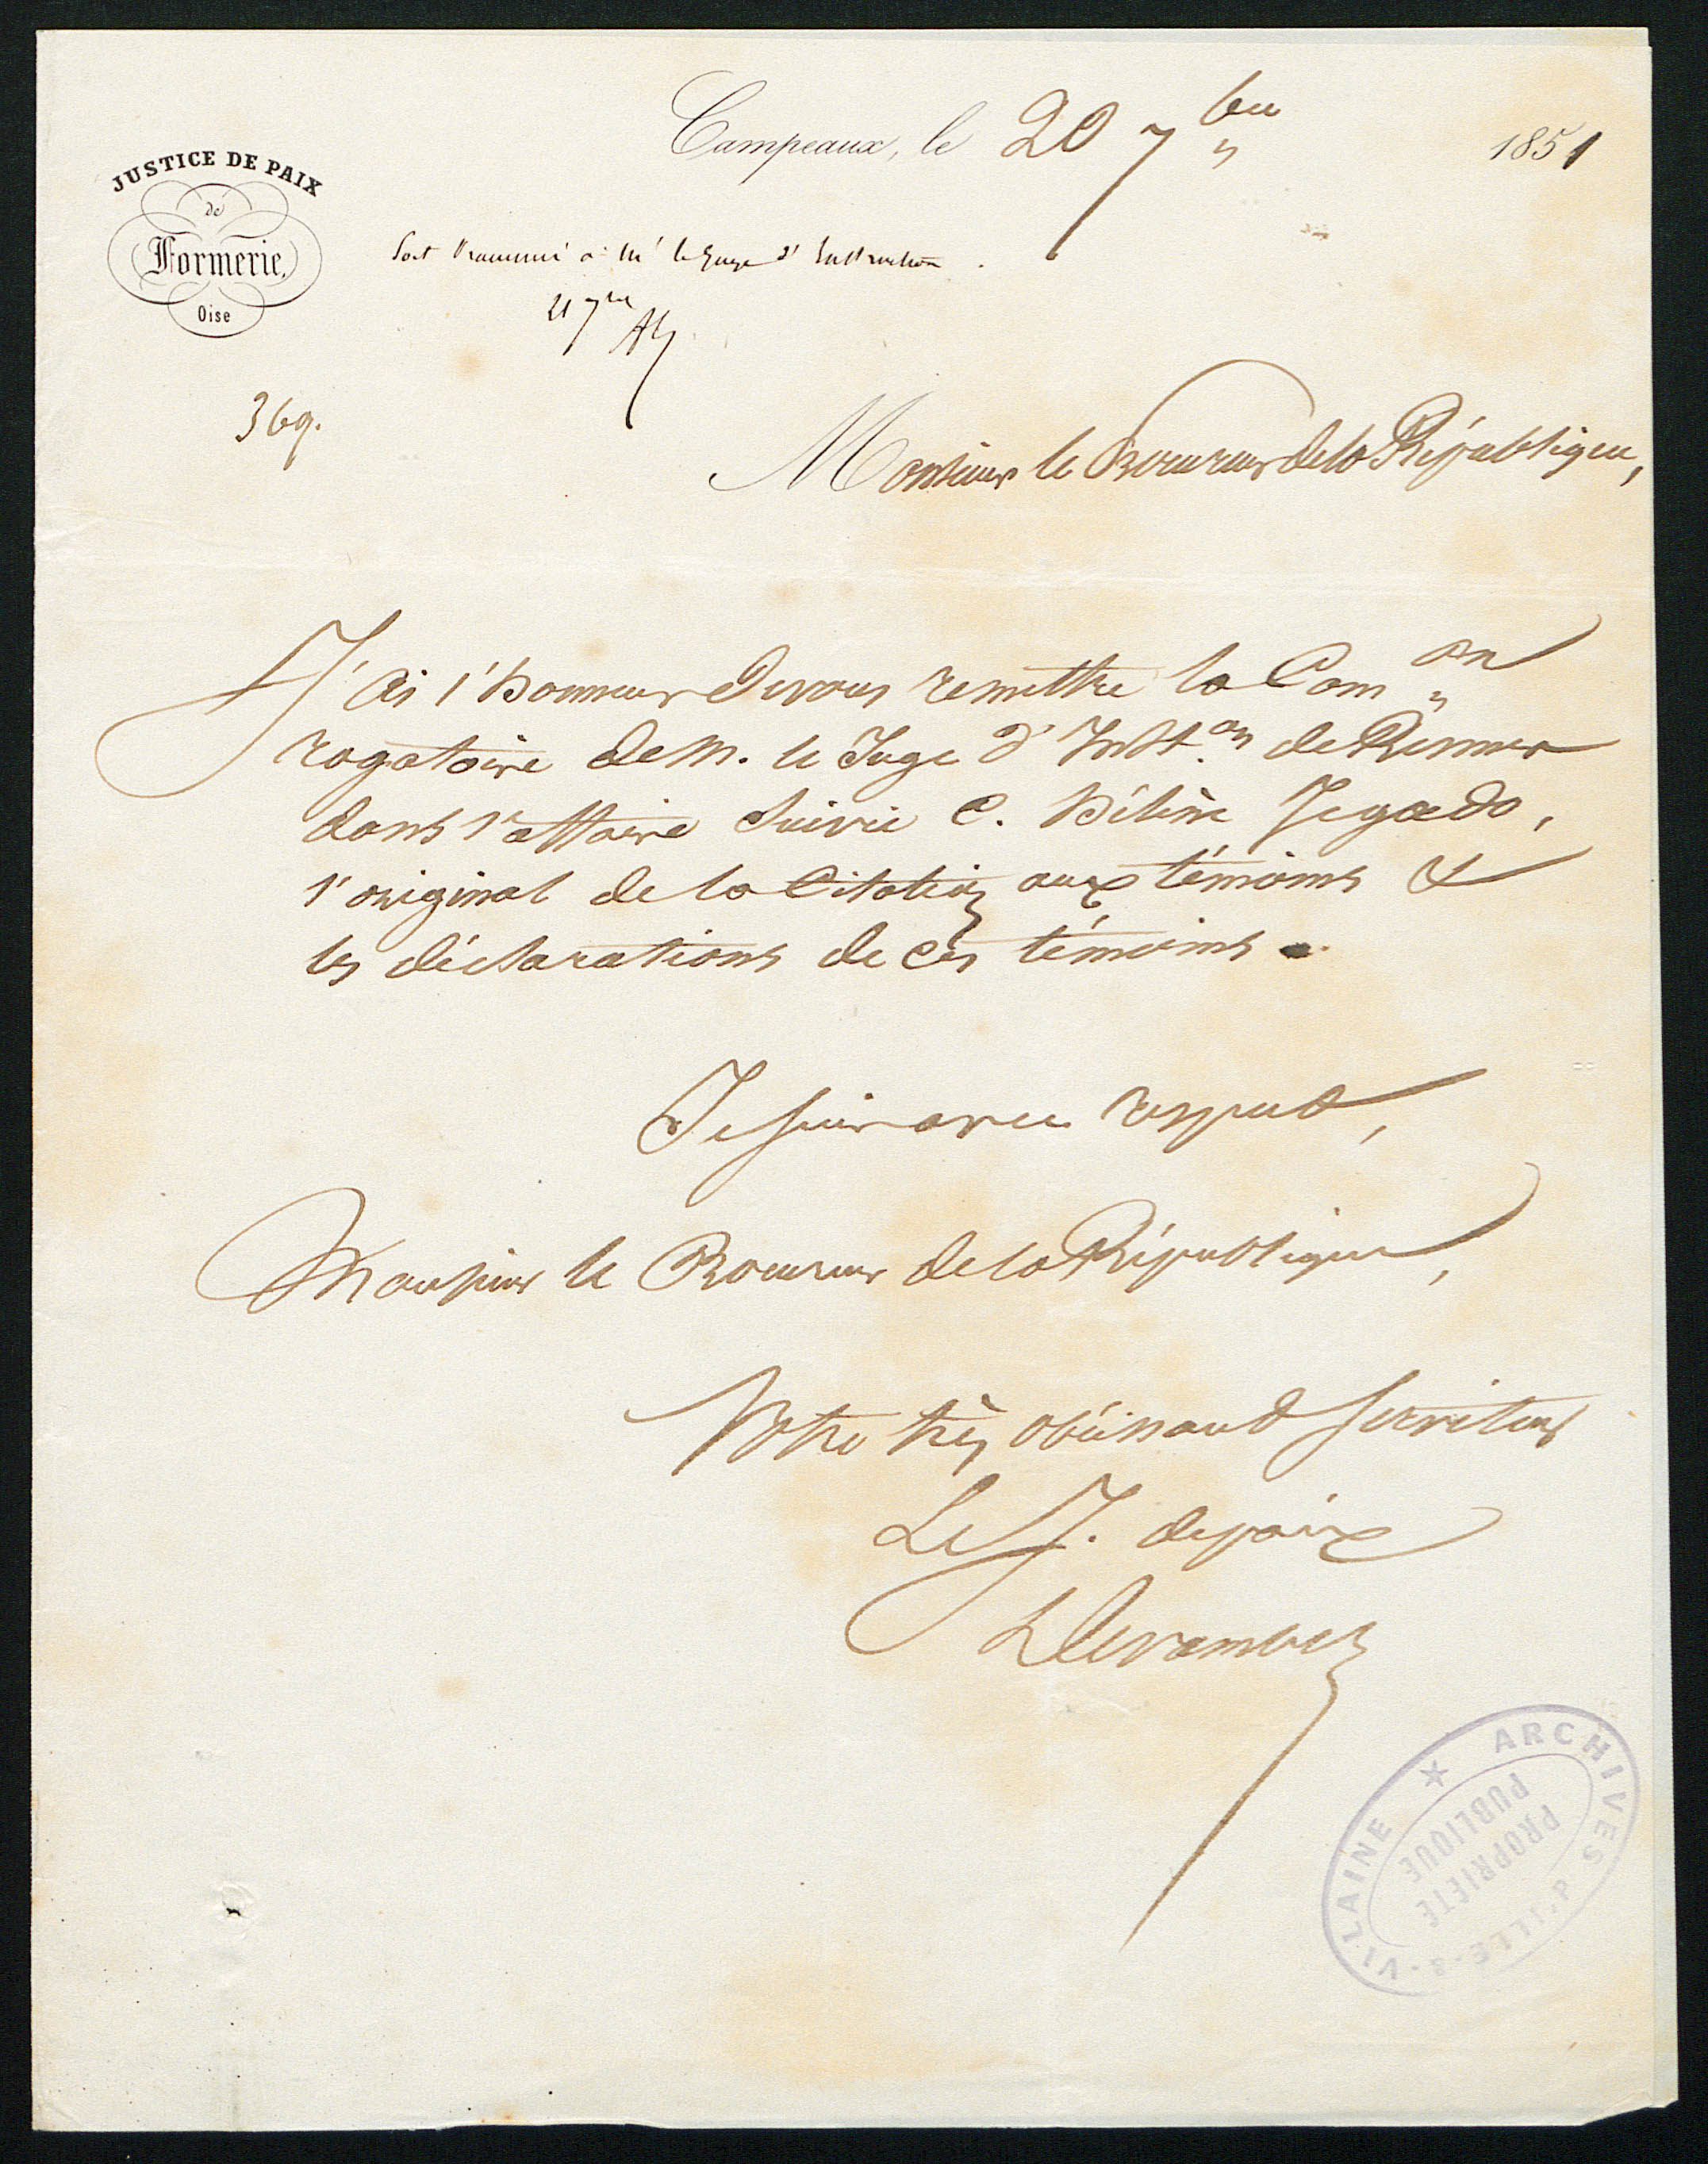 Campeaux, le 20 7bre 1851
JUSTICE DE PAIX
de
Formerie,
Oise
Soit transmis à Mr le Juge d'Instruction.
21 7bre
369.
Monsieur le Procureur de la République,
J'ai l'honneur de vous remettre la Comon
rogatoire de M. le Juge d'Inston de Rennes
dans l'affaire suivie C. Hélène Jegado,
l'original de la Citation aux témoins &
les déclarations de ces témoins.
Je suis avec respect,
Monsieur le Procureur de la République,
Votre très obéissant serviteur
Le J. de paix
ARCHIVES D'ILLE-&-VILAINE ★
PROPRIETE
PUBLIQUE